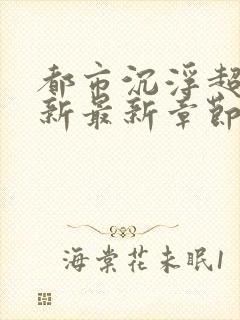 都市沉浮超
新最新章节
海棠花未眠1